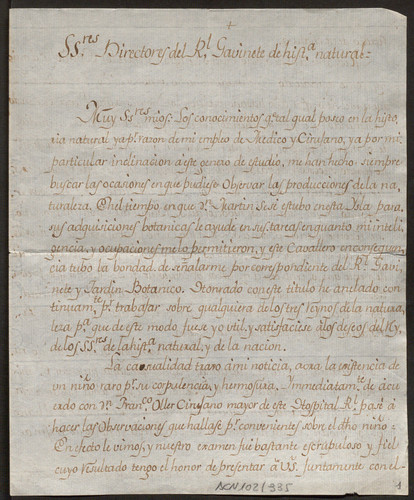 SS.res Directores del R.l Gavinete de hist.a natural=
Muy SS.res mios: Los conocimientos q.e tal qual poseo en la histo,,
ria natural ya p.r razon de mi empleo de Medico y Cirujano, ya por mi
particular inclinacion a este genero de estudio, me han hecho siempre
buscar las ocasiones en que pudiese Observar las producciones de la na,,
turaleza. En el tiempo en que D.n Martin Sesé estubo en esta Isla para
sus adquisiciones botanicas le ayude en sus tareas en quanto mi inteli,,
gencia, y ocupaciones me lo permitieron, y este Cavallero en conseqüen,,
cia tubo la bondad de señalarme por correspondiente del R.l Gavi,,
nete y Jardin Botanico. Honrado con este titulo he anelado con
tinuam.te p.r trabajar sobre qualquiera de los tres Reynos de la natura,,
leza p.a que de este modo fuese yo util, y satisfaciese â los deseos del Rey,
de los SS.res de la hist.a natural, y de la nacion.
La casualidad traxo â mi noticia, acia la existencia de
un niño raro p.r su corpulencia, y hermosura. Immediatam.te de acu
erdo con D.n Fran.co Oller Cirujano mayor de este Hospital R.l pasé â
hacer las Observaciones que hallase p.r convenientes sobre el dho niño.
En efecto le vimos, y nuestro examen fue bastante escrupuloso y fiel
cuyo resultado tengo el honor de presentar â VS. juntamente con el
ACN 102/335
1